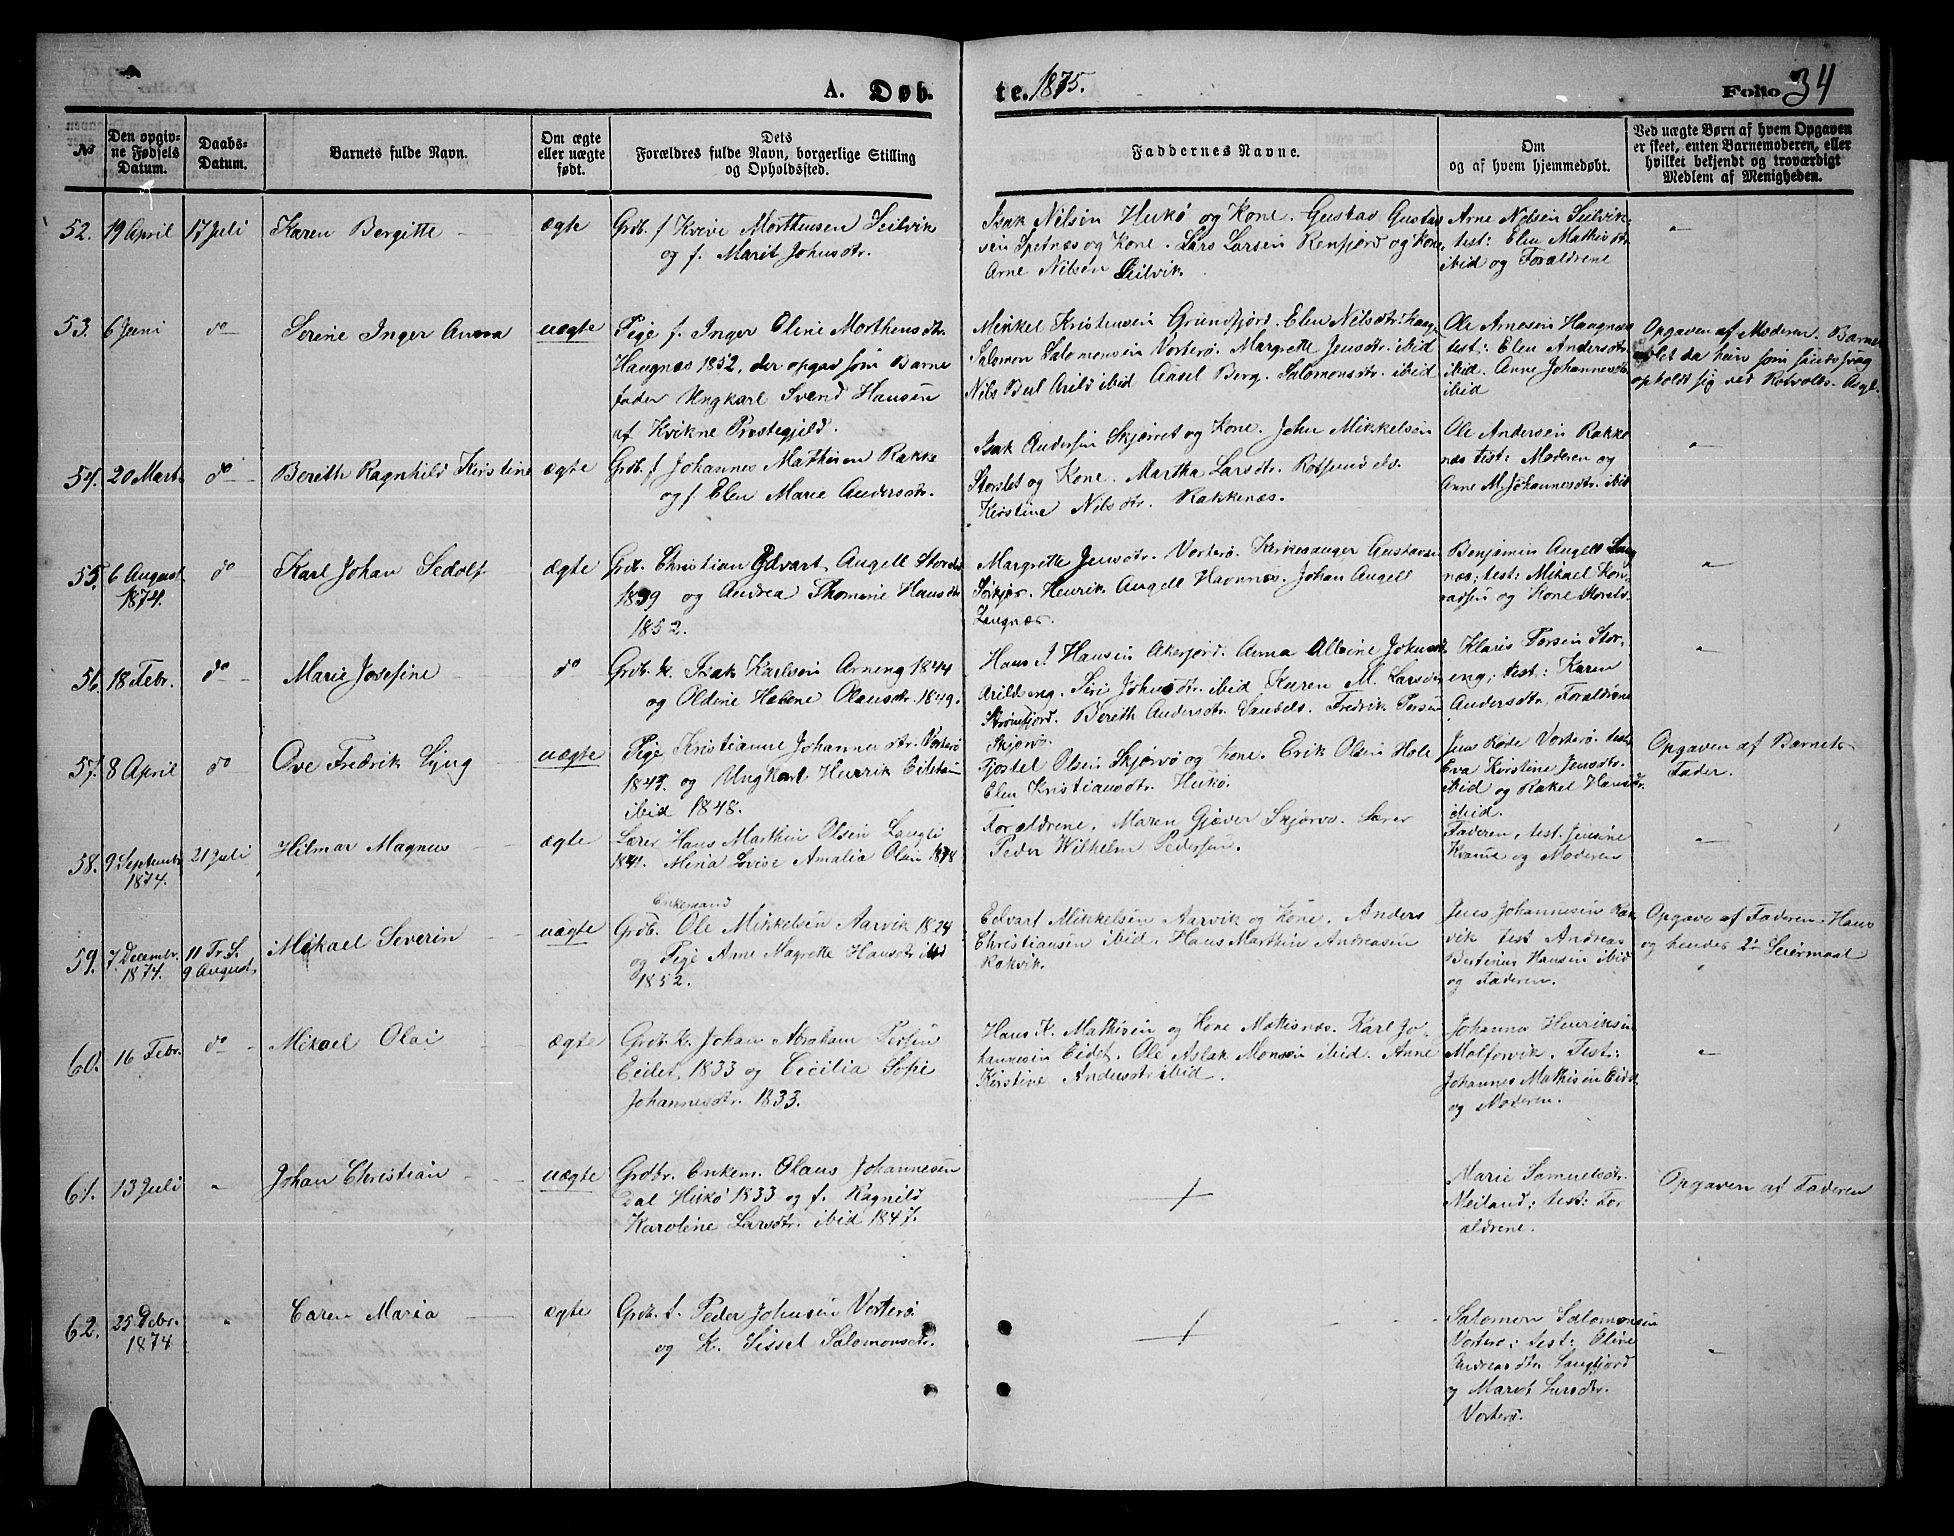 A. Døb. te. 1875. Folio 34
№
Den opgiv-
ne Fødsels
Datum.
Daabs-
Datum.
Barnets fulde Navn.
Om ægte
eller uægte
født.
Dets
Forældres fulde Navn, borgerlige Stilling
og Opholdssted.
Faddernes Navne.
Om
og af hvem hjemmedøbt.
Ved uægte Børn af hvem Opgaven
er skeet, enten Barnemoderen, eller
hvilket bekjendt og troværdigt
Medlem af Menigheden.
52. 19 April 17 Juli Karen Bergitte ægte
Grdb. f Kvive Morthensen Seilvik
og f. Marit Johnsdtr.
Isak Nilsen Hukø og Kone. Gustav Gustav
sen Spetnæs og Kone. Lars Larsen Renfjord og Kone
Arne Nilsen Seilvik.
Arne Nilsen Seilvik
test: Elen Mathisdtr.
ibid og Forældrene
"
53. 6 Juni do Serene Inger Anna uægte
Pige f. Inger Eline Morthensdtr.
Haugnæs 1852, der opgav som Barne
fader Ungkarl Svend Hansen
af Kvikne Prestegjeld.
Mikkel Kristensen Grundfjord. Elen Nilsdtr.
Salomon Salomonsen Vorterø. Margrette Jensdtr. ibid
Nils Berl Arild ibid Aasel Berg. Salomonsdtr. ibid
Ole Arnesen Haugnæs
test: Elen Andersdtr.
ibid. Anne Johannesdtr.
ibid
Opgaven af Moderen. Barne
avlet da hun som sindssvag
opholdt sig ved Rotvolds Asyl.
54. 20 Mart. do Berith Ragnhild Kristine ægte
Grdb. f Johannes Mathisen Rakke
og f. Elen Marie Andersdtr.
Isak Andersen Skjærret og Kone. John Mikkelsen
Storslet og Kone. Martha Larsdtr. Rotsund elv.
Kirstine Nilsdtr. Rakkenæs.
Ole Andersen Rakke
næs test: Moderen og
Anne M. Johannesdtr. ibid
"
55. 6 August do Karl Johan Sedolf ægte
1874.
Grdb. Christian Edvart Angell Storslet
1839 og Andrea Thomine Hansdtr.
1852.
Margrette Jensdtr. Vorterø. Kirkesanger Gustavsen
Sørkjos. Henrik Angell Havnnæs. Johan Angell
Langnæs.
Benjamin Angell Laug
næs; test: Mikael Kon-
radsen og Kone Storslet
"
56. 18 Febr. do Marie Josefine do
Grdb. k. Isak Karlsen Arneng 1844
og Oldine Helene Olausdtr. 1849.
Hans A Hansen Akerfjord. Anna Albine Johnsdtr.
Arild eng. Siri Johnsdtr. ibid Karen M. Larsen
Strømfjord. Berith Andersdtr. Vaubels. Fredrik Torsen
Skjervø.
Klaus Torsen Stor-
eng; test: Karen
Andersdtr, Forældrene
"
57. 8 April do Ove Fredrik Ljug uægte
Pige Kristianne Johannesdtr. Vorterø
1843. og Ungkarl Henrik Eiletsen
ibid 1848.
Tostel Olsen Skjervø og Kone. Erik Olsen Hole
Elen Kristiansdtr. Hukø.
Jens Røde Vorterø. test:
Eva Kirstine Jensdtr.
ibid og Rakel Hansdtr.
ibid.
Opgaven af Barnets
Fader.
58. 9 Septembr. 21 Juli Hilmar Magnus ægte
1874.
Lærer Hans Marthin Olsen Langli
1841. Mina Lovise Amalia Olsen 1848
Forældrene. Maren Gjæver Skjervø. Lærer
Peder Wilhelm Pedersen.
Faderen, test. Jensine
Kvanne og Moderen
"
59. 7 Decembr. 11 Tr. S. Mikael Severin uægte
1874. 9 August.
Enkemand
Grdb. Ole Mikkelsen Aarvik 1824
og Pige Arne Magrette Hansdtr ibid
1852.
Edvart Mikkelsen Aarvik og Kone. Anders
Christiansen ibid. Hans Marthin Andreasen
Rakvik.
Jens Johannesen Rak
vik test Andreas
Bertinius Hansen ibid
og Faderen.
Opgave af Faderen. Hans
og hendes 2de Leiermaal
"
60. 16 Febr. do Mikael Olai ægte
Grdb. k. Johan Abraham Persen
Eidet, 1833 og Cicilia Sofie
Johannesdtr. 1833.
Hans K. Mathisen og Kone Mathisnæs. Karl Jo-
hannesen Eidet. Ole Aslak Monsen ibid. Anne
Kirstine Andersdtr ibid.
Johannes Henriksen
Molforvik. Test:
Johannes Mathisen Eidet
og Moderen.
"
61. 13 Juli " Johan Christian uægte
Grdbr. Enkem. Olaus Johannesen
Dal Hukø 1833 og f. Ragnild
Karoline Larsdtr. ibid 1847.
+
Marie Samuelsdtr.
Meiland; test: For
ældrene.
Opgaven af Faderen
62. 25 Debr. " Caren Maria ægte
1874
Grdb. f. Peder Johnsen Vorterø
og K. Sissel Salomonsdtr.
+
Salomon Salomonsen
Vorterø: test: Oline
Andreasdtr Langfjord
og Marit Larsdtr.
Vorterø.
"